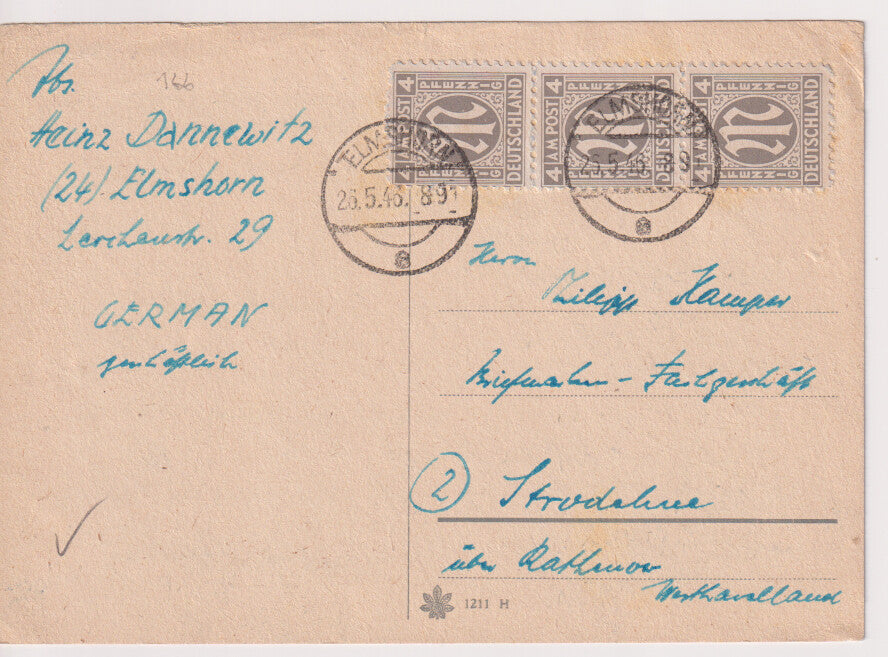 Abs.
166
Heinz Dannewitz
(24) Elmshorn
Lerchenstr. 29
GERMAN
geschäftlich
4 AM POST PFENNIG DEUTSCHLAND 4
4 AM POST PFENNIG DEUTSCHLAND 4
4 AM POST PFENNIG DEUTSCHLAND 4
ELMSHORN
25.5.46. 8-9
e
ELMSHORN
25.5.46. 8-9
a
Herrn
Kamper
Briefmarken - Fachgeschäft
(2) Strodehne
über Rathenow
Westhavelland
1211 H